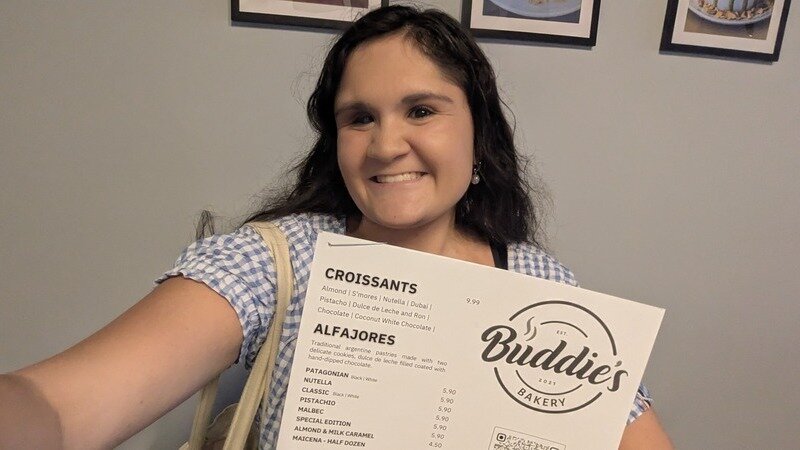 CROISSANTS
Almond | S'mores | Nutella | Dubai | 9.99
Pistachio | Dulce de Leche and Ron |
Chocolate | Coconut White Chocolate |
ALFAJORES
Traditional argentine pastries made with two
delicate cookies, dulce de leche filled coated with
hand-dipped chocolate.
PATAGONIAN Black / White 5.90
NUTELLA 5.90
CLASSIC Black / White 5.90
PISTACHIO 5.90
MALBEC 5.90
SPECIAL EDITION 5.90
ALMOND & MILK CARAMEL 4.50
MAICENA - HALF DOZEN
EST.
Buddie's
2021
BAKERY